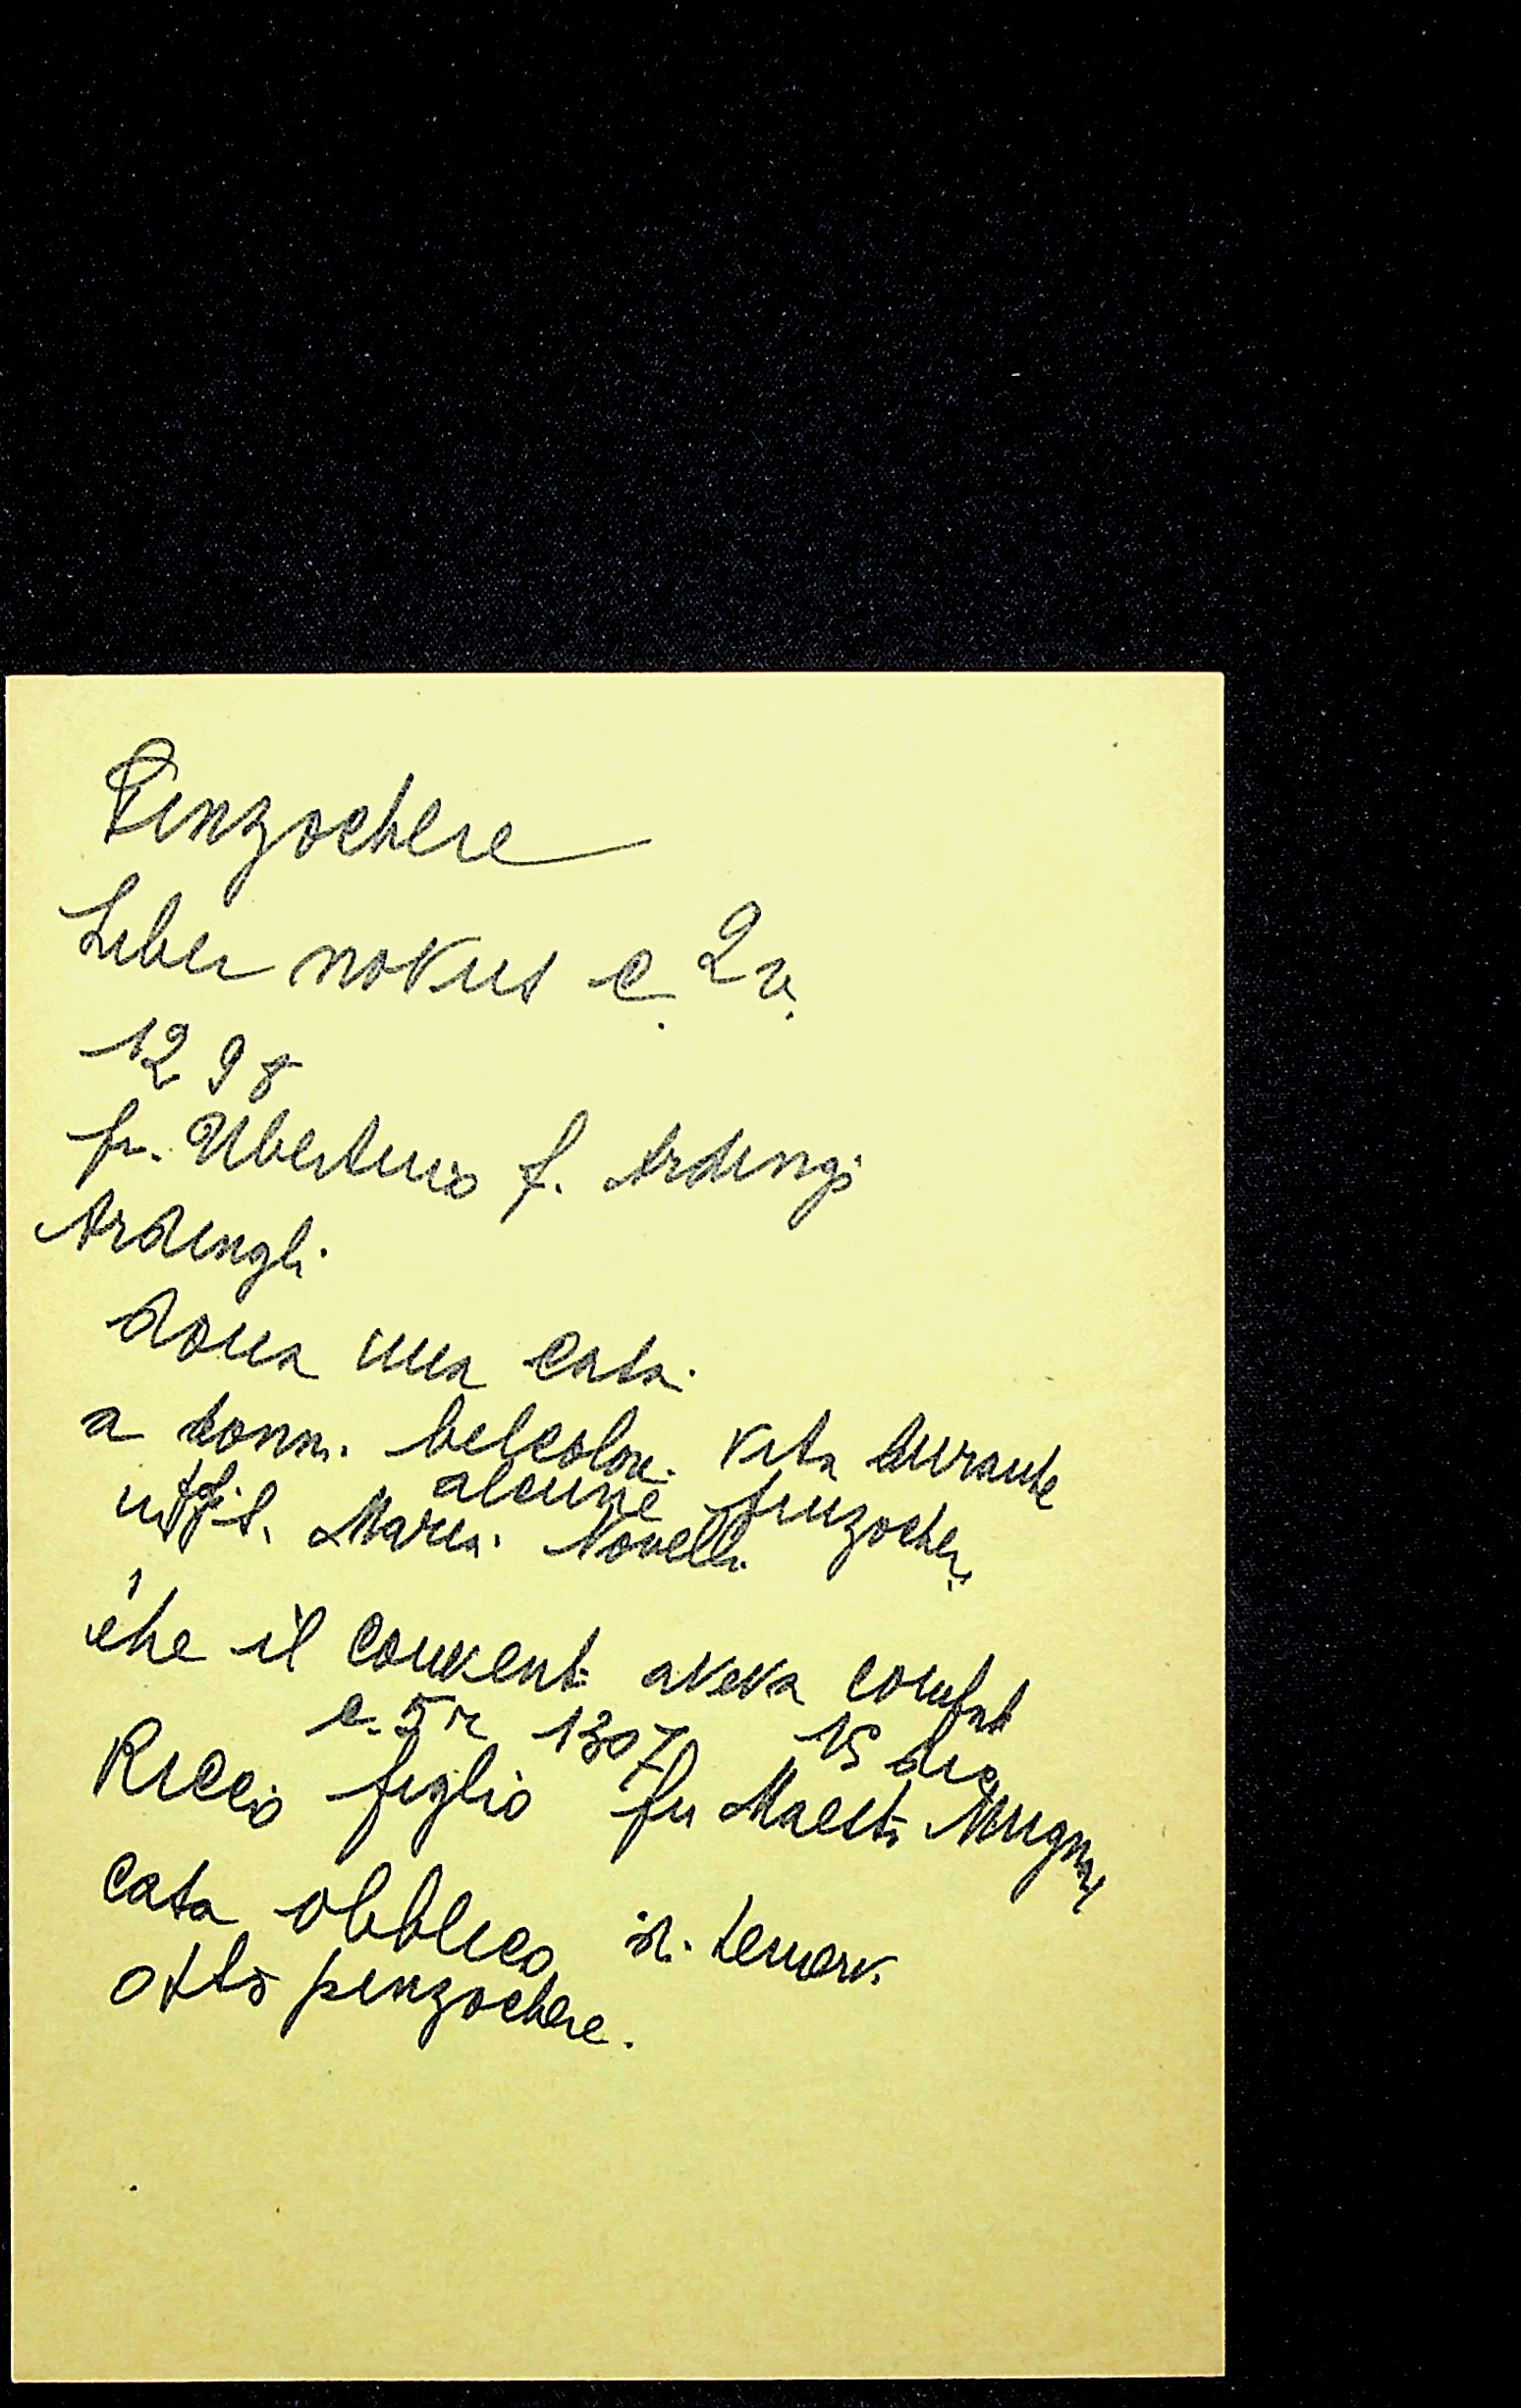 Pinzochere
Liber novus c. 2v.
1298
fr. Ubertino f. Ardingi
Ardinghi
dona una casa
a donn. belcolor. vita durante
alcune pinzocher.
Maria Novella
che il convent. aveva comprat
c. 5r 1307 15 dic
Riccio figlio fu Maestr.
casa obbligo
otto pinzochere.